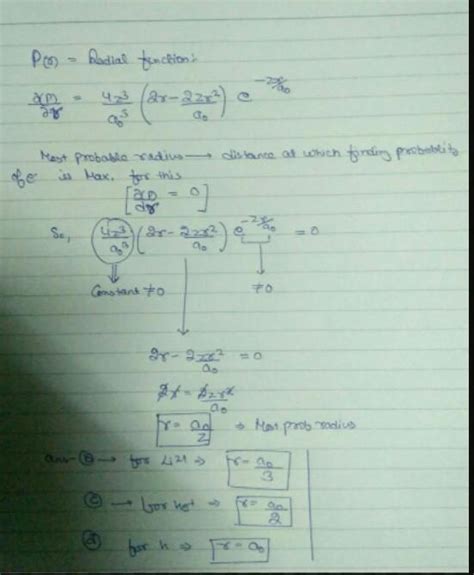 P(r) = Radial function:
∂P/∂r = 4z³/a₀³ (2r - 2zr²/a₀) e^(-2zr/a₀)
Most probable radius → distance at which finding probability
of e⁻ is Max. for this
[∂P/∂r = 0]
So, 4z³/a₀³ (2r - 2zr²/a₀) e^(-2zr/a₀) = 0
Constant ≠ 0 ≠ 0
2r - 2zr²/a₀ = 0
2r = 2zr²/a₀
r = a₀/z ⇒ Most prob radius
ans → for Li²⁺ ⇒ r = a₀/3
(c) → for He⁺ ⇒ r = a₀/2
(d) for h ⇒ r = a₀